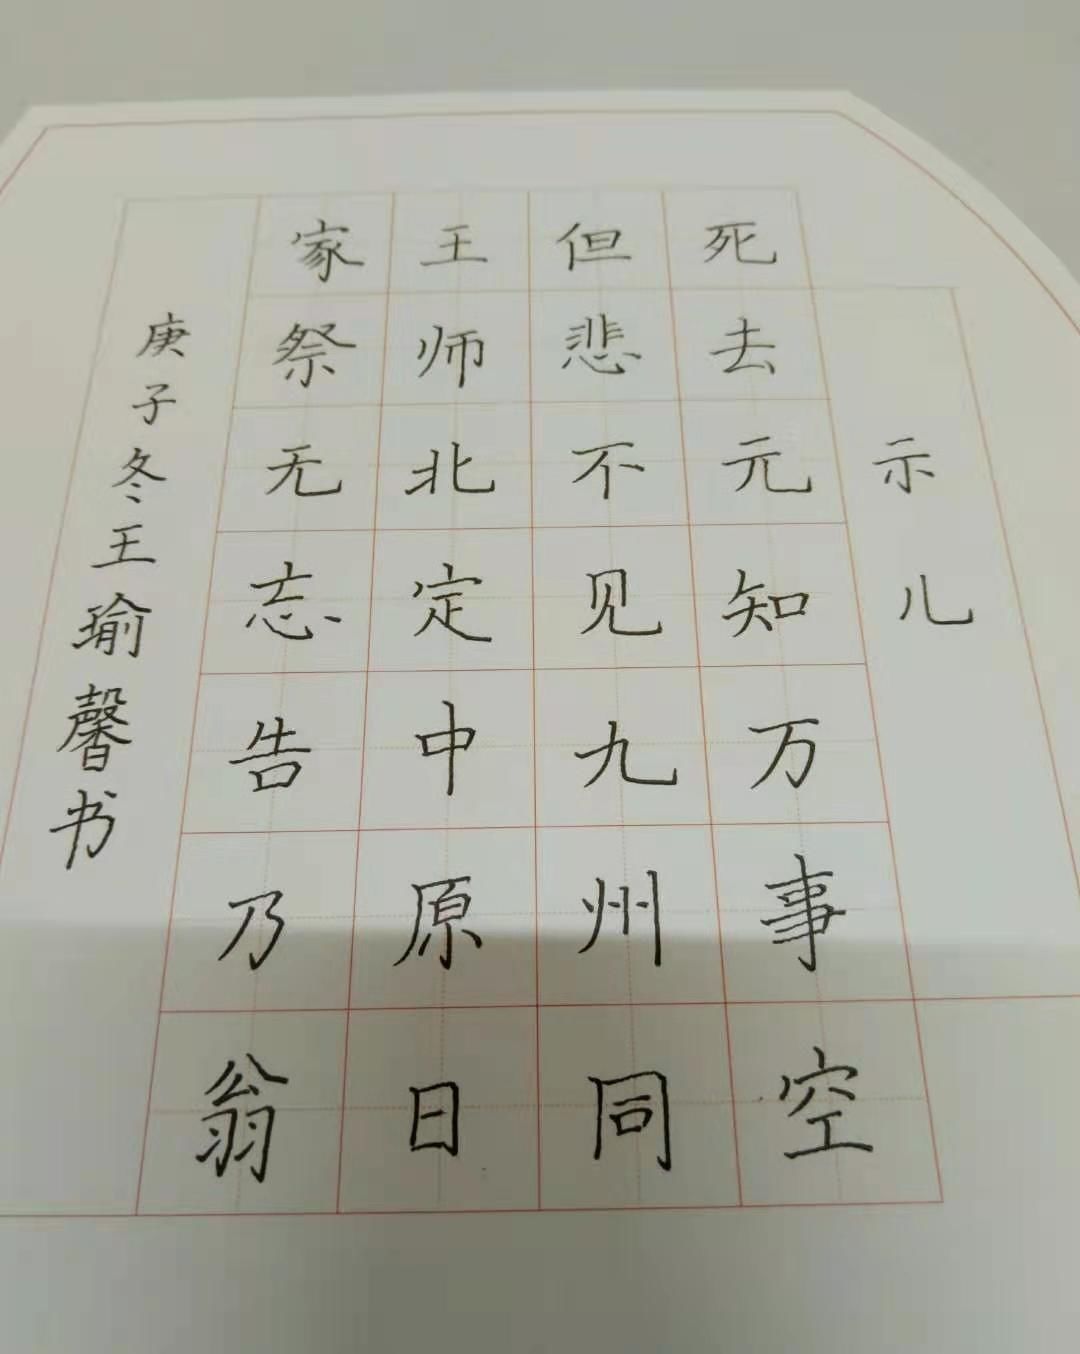 示儿
死去元知万事空
但悲不见九州同
王师北定中原日
家祭无忘告乃翁
庚子冬王瑜馨书